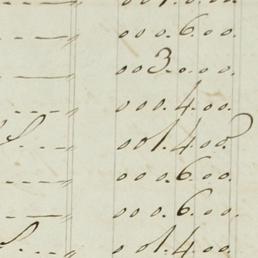 000.6.00.
003.0.00.
000.4.00.
001.4.00.
000.6.00.
000.6.00.
001.4.00.